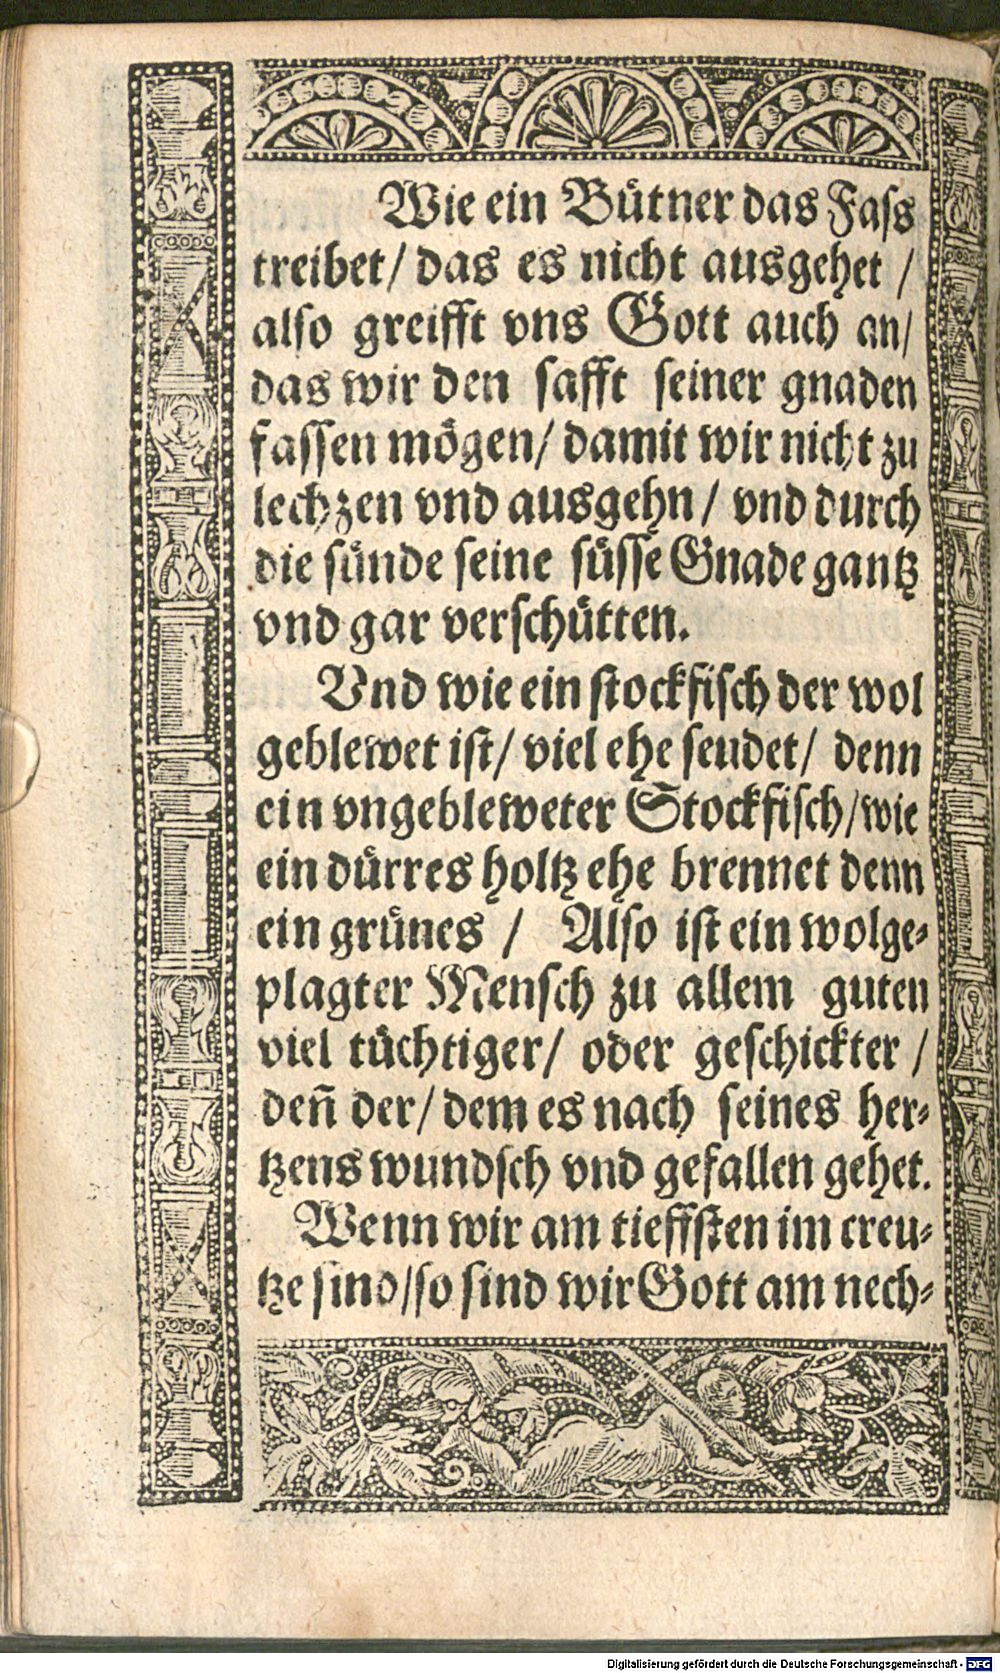 Wie ein Bütner das Fass
treibet/ das es nicht ausgehet /
also greifft vns Gott auch an/
das wir den safft seiner gnaden
fassen mögen/ damit wir nicht zu
lechzen vnd ausgehn / vnd durch
die sünde seine süsse Gnade gantz
vnd gar verschütten.
Vnd wie ein stockfisch der wol
geblewet ist/ viel ehe seudet/ denn
ein vngebleweter Stockfisch/wie
ein dürres holtz ehe brennet denn
ein grünes / Also ist ein wolge⸗
plagter Mensch zu allem guten
viel tüchtiger/ oder geschickter /
deñ der/ dem es nach seines her⸗
tzens wundsch vnd gefallen gehet.
Wenn wir am tieffsten im creu⸗
tze sind/so sind wir Gott am nech⸗
Digitalisierung gefördert durch die Deutsche Forschungsgemeinschaft - DFG